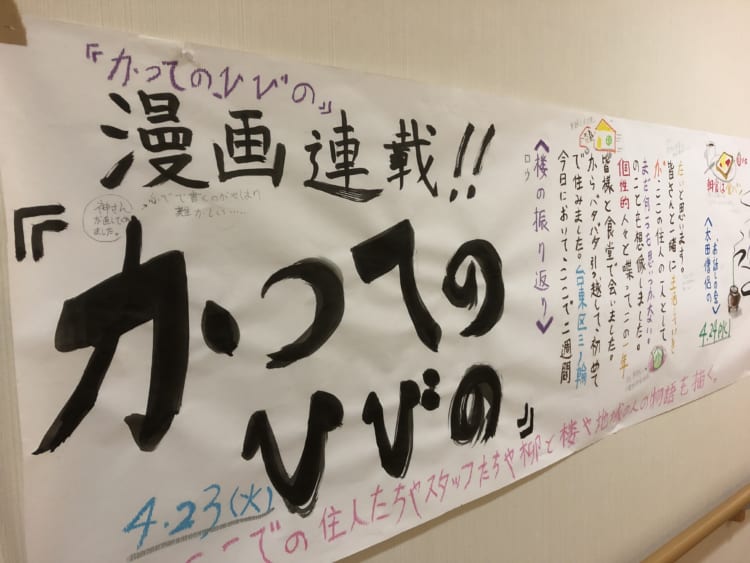 『かつてのひびの』
漫画連載!!
神さん
が直してくれ
ました。
ふでで書くのがやはり
難がしい……
『かつての
ひびの』
4.23(火)
ここでの住人たちやスタッフたちや柳と楼や地域の人の物語を描く。
〈楼の振り返り〉
ロウ
今日において、ここで二週間
で住みました。台東区三ノ輪
からバタバタ引っ越して初めて
皆様と食堂で会いました。
個性的人々と喋って、この一年
のことを想像しました。
まだ何つも思いつかない。
が、ここの住人の一人として
皆さんと一緒に生活していき
たいと思います。
4.24(水)
〈太田僧侶の
お話しの会〉
朝食は